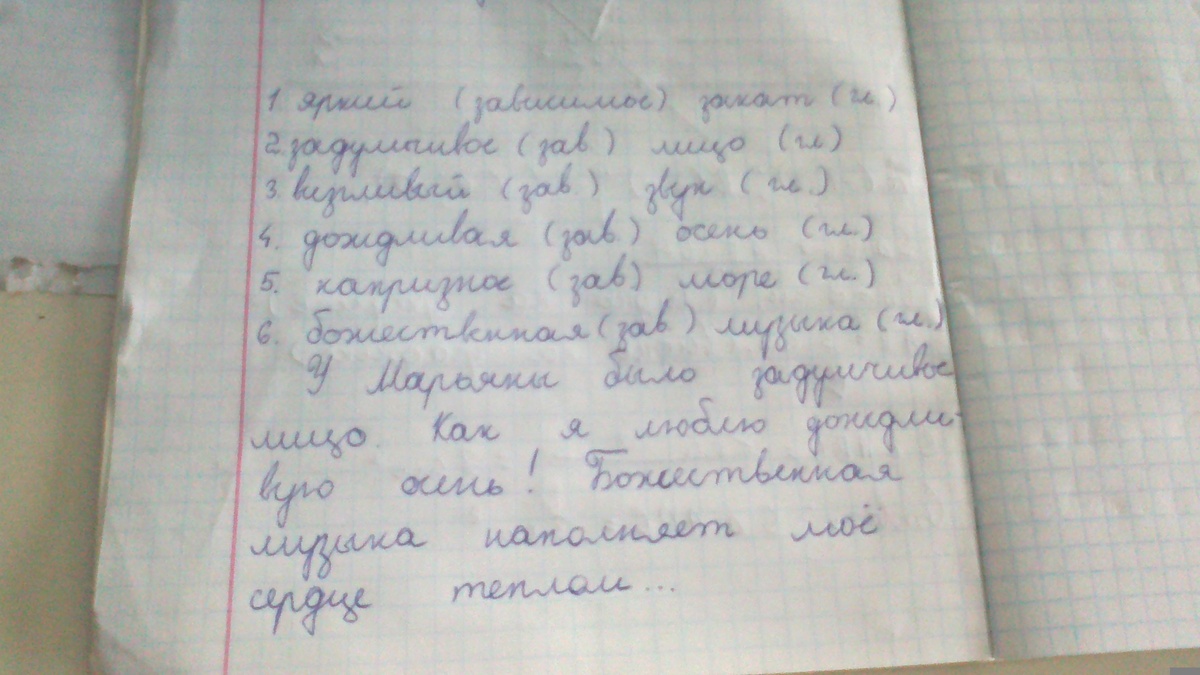 1. яркий (зависимое) закат (гл.)
2. задумчивое (зав.) лицо (гл.)
3. визгливый (зав.) звук (гл.)
4. дождливая (зав.) осень (гл.)
5. капризное (зав) море (гл.)
6. божественная (зав.) музыка (гл.)
У Марьяны было задумчивое
лицо. Как я люблю дождли-
вую осень! Божественная
музыка наполняет моё
сердце теплом...